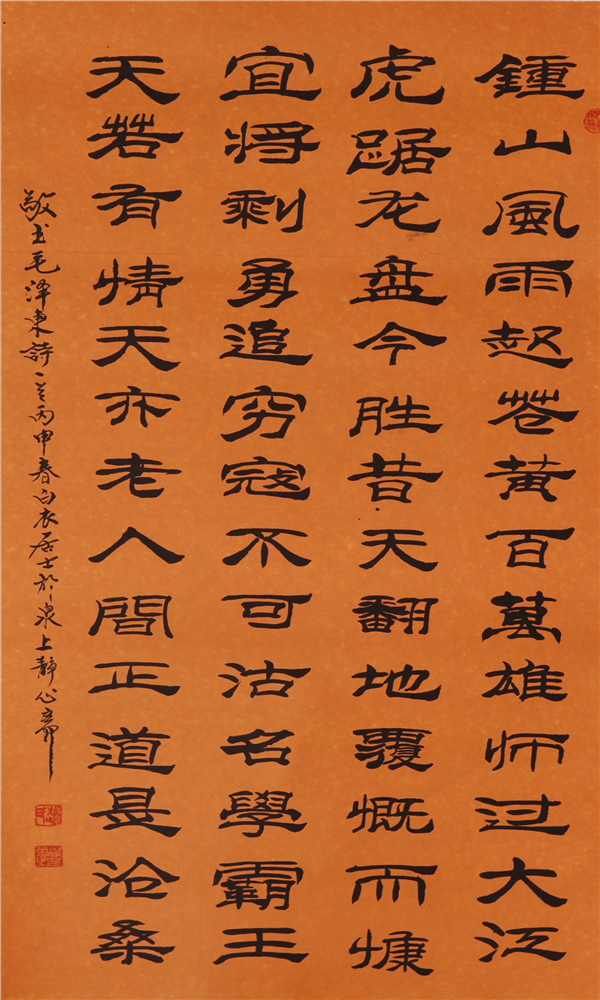 鍾山風雨起苍黄百萬雄师过大江
虎踞龙盘今胜昔天翻地覆慨而慷
宜将剩勇追穷寇不可沽名學霸王
天若有情天亦老人間正道是沧桑
敬书毛泽東詩一首丙申春白衣居士於泉上靜心斋